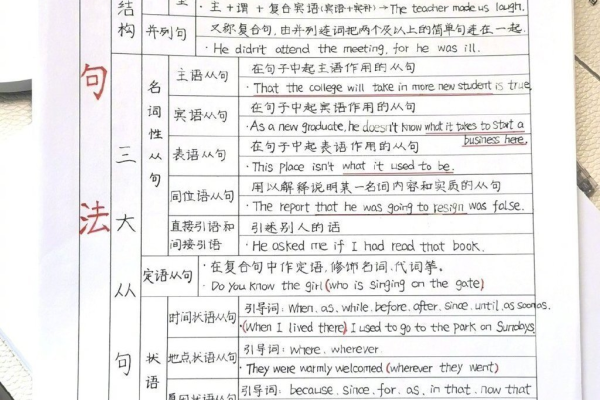 结构
型
· 主+谓+复合宾语(宾语+宾补) → The teacher made us laugh.
并列句
又称复合句,由并列连词把两个及以上的简单句连在一起.
· He didn't attend the meeting, for he was ill.
句法
三大从句
名词性从句
主语从句
在句子中起主语作用的从句
· That the college will take in more new student is true.
宾语从句
在句子中起宾语作用的从句
· As a new graduate, he doesn't know what it takes to start a
business here.
表语从句
在句子中起表语作用的从句
· This place isn't what it used to be.
同位语从句
用以解释说明某一名词内容和实质的从句
· The report that he was going to resign was false.
直接引语和
间接引语
引述别人的话
· He asked me if I had read that book.
定语从句
· 在复合句中作定语,修饰名词、代词等。
· Do you know the girl (who is singing on the gate)
状语
时间状语从句
引导词: When. as. while. before. after. since. until. as soon as.
· (When I lived there) I used to go to the park on Sundays
地点状语从句
引导词: where. wherever.
· They were warmly welcomed (wherever they went)
原因状语从句
引导词: because. since. for. as. in that. now that